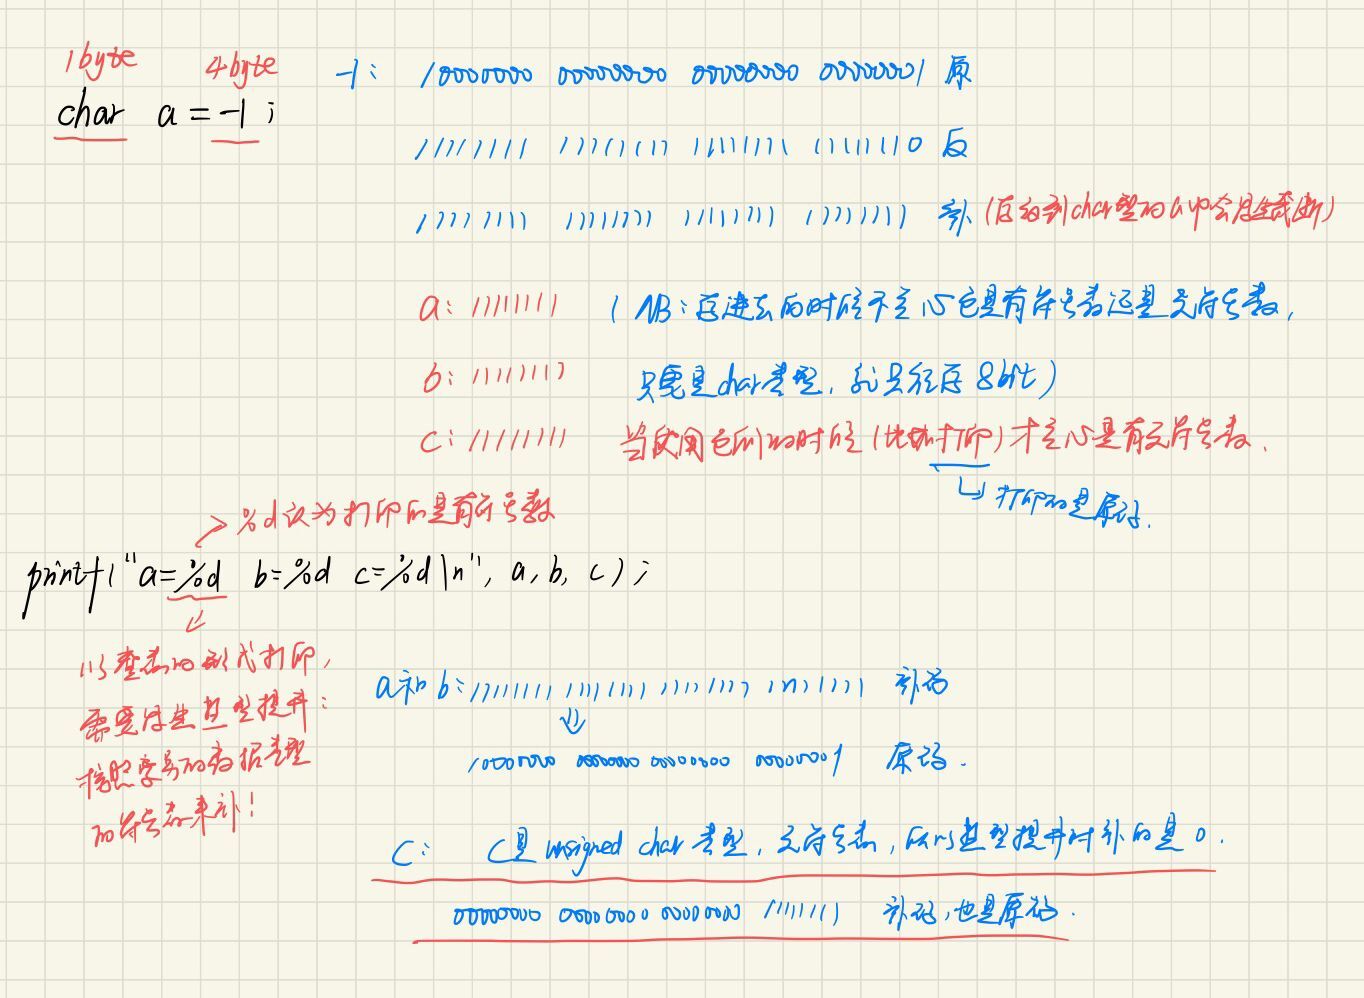 1byte 4byte
char a = -1 ;
-1: 10000000 00000000 00000000 00000001 原
11111111 11111111 11111111 11111110 反
11111111 11111111 11111111 11111111 补 (存到char型的a中会发生截断)
a: 11111111 (NB:存进去的时候不关心它是有符号数还是无符号数,
b: 11111111 只要是char类型,就只能存8bit)
c: 11111111 当使用它们的时候(比如打印)才关心是有无符号数.
打印的是原码.
%d认为打印的是有符号数
printf("a=%d b=%d c=%d\n", a, b, c);
以整型的形式打印,
需要发生整型提升:
按照变量的数据类型
的符号位来补!
a和b: 11111111 11111111 11111111 11111111 补码
10000000 00000000 00000000 00000001 原码.
C: C是unsigned char类型,无符号数,所以整型提升时补的是0.
00000000 00000000 00000000 11111111 补码,也是原码.